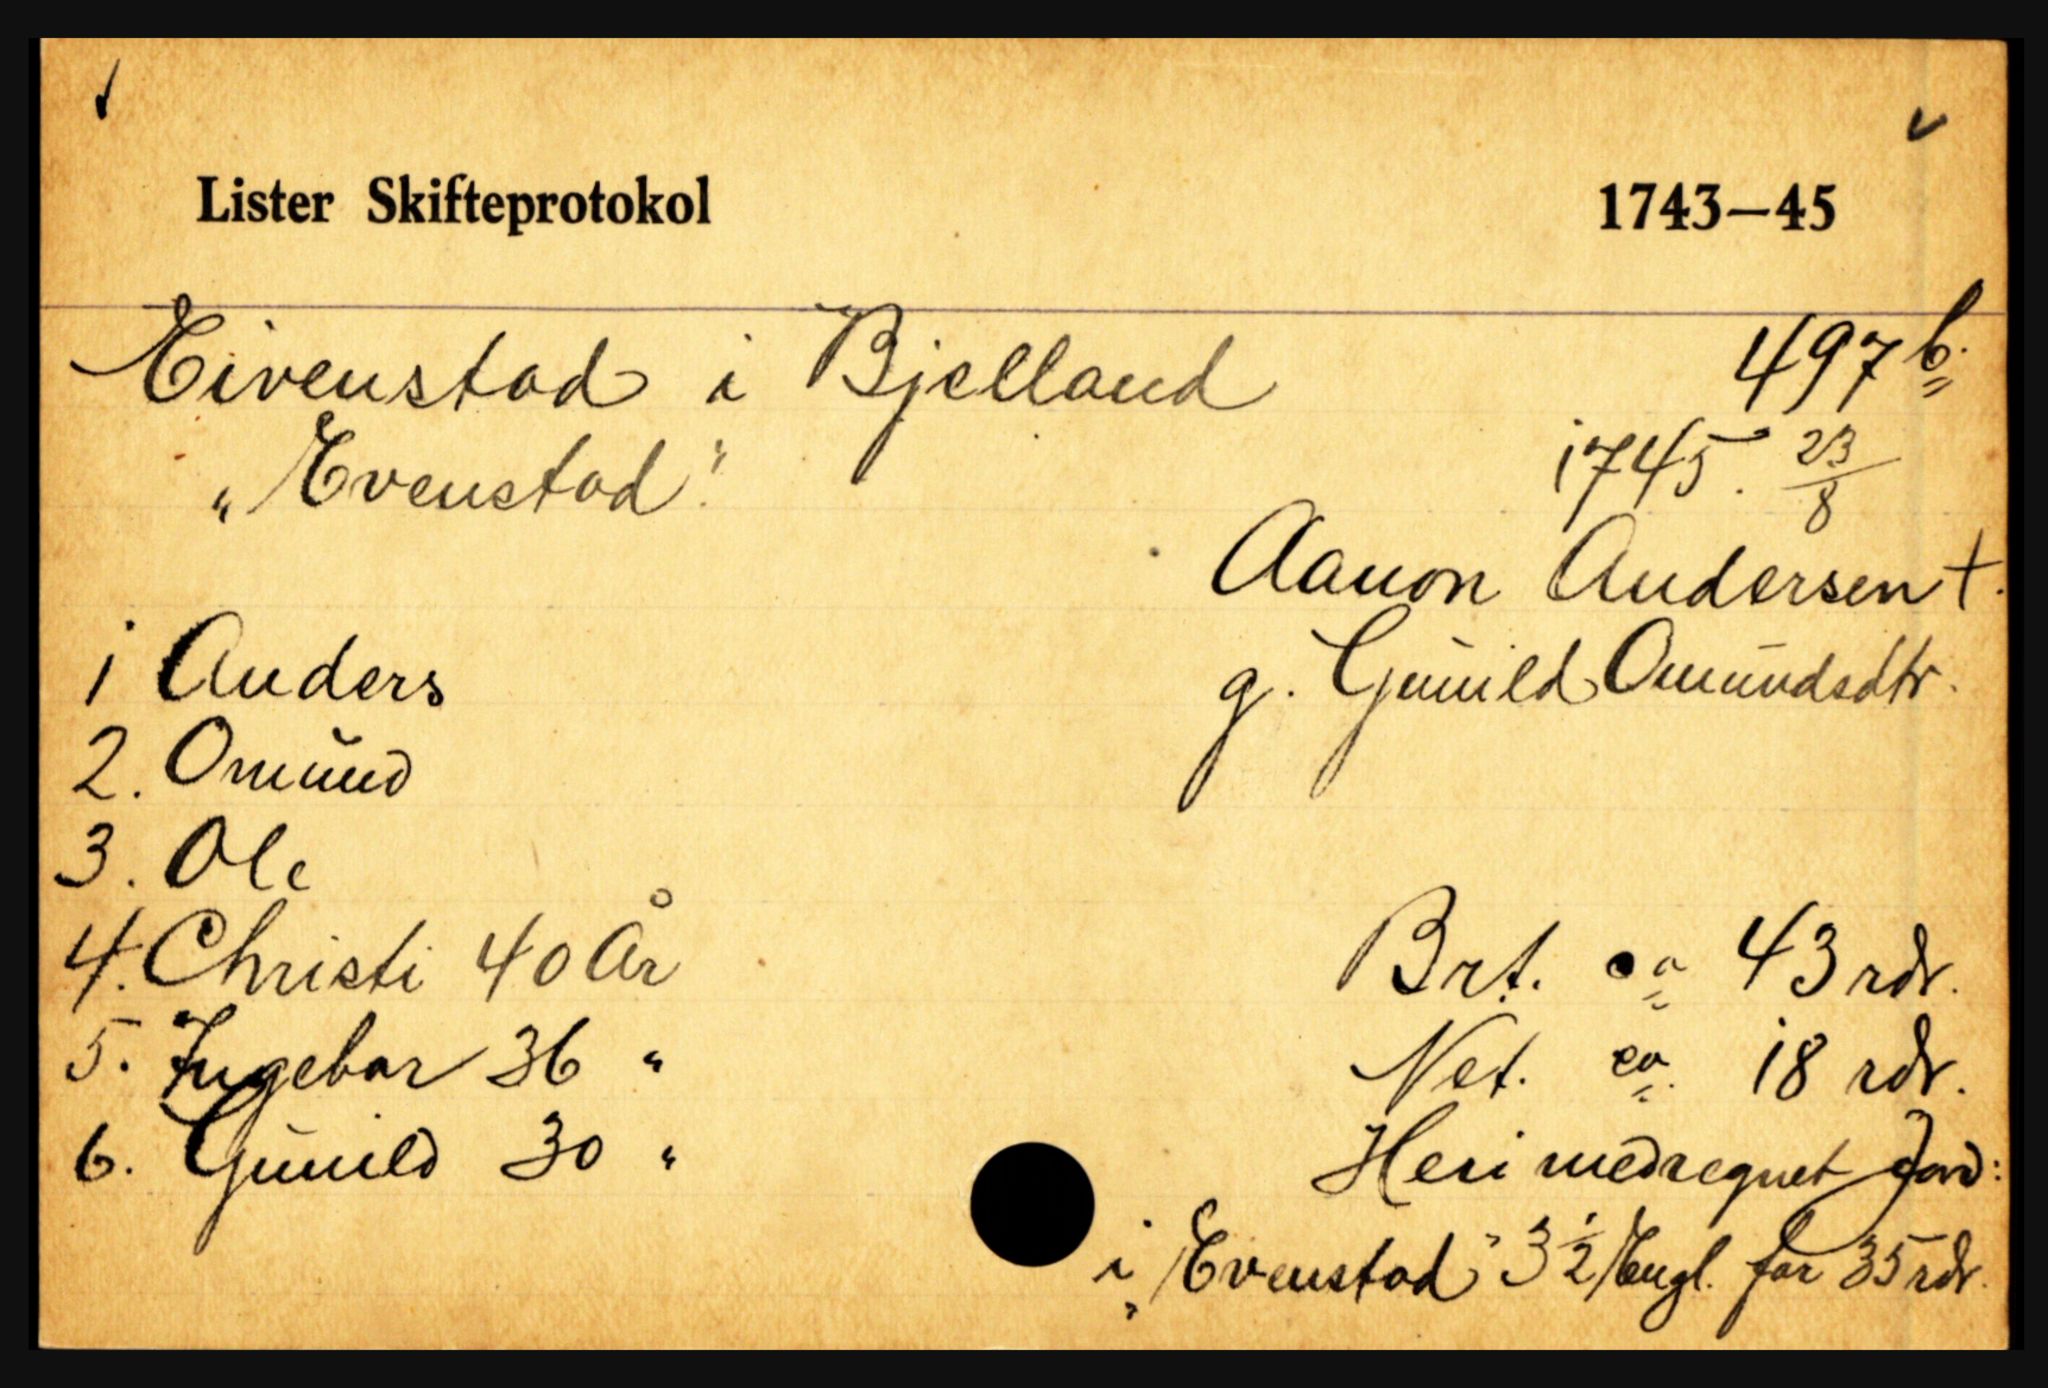 Lister Skifteprotokol 1743—45
Eivenstad i Bjelland 497 b.
„Evenstad". 1745. 23/8
Aanon Andersen †.
1 Anders g. Gunild Omundsdtr.
2. Omund
3. Ole
4. Christi 40 År Brt. ca 43 rdr.
5. Ingebor 36 " Net. ca. 18 rdr.
6. Gunild 30 " Heri medregnet Jord:
i „Evenstad" 3½ Engl. for 35 rdr.